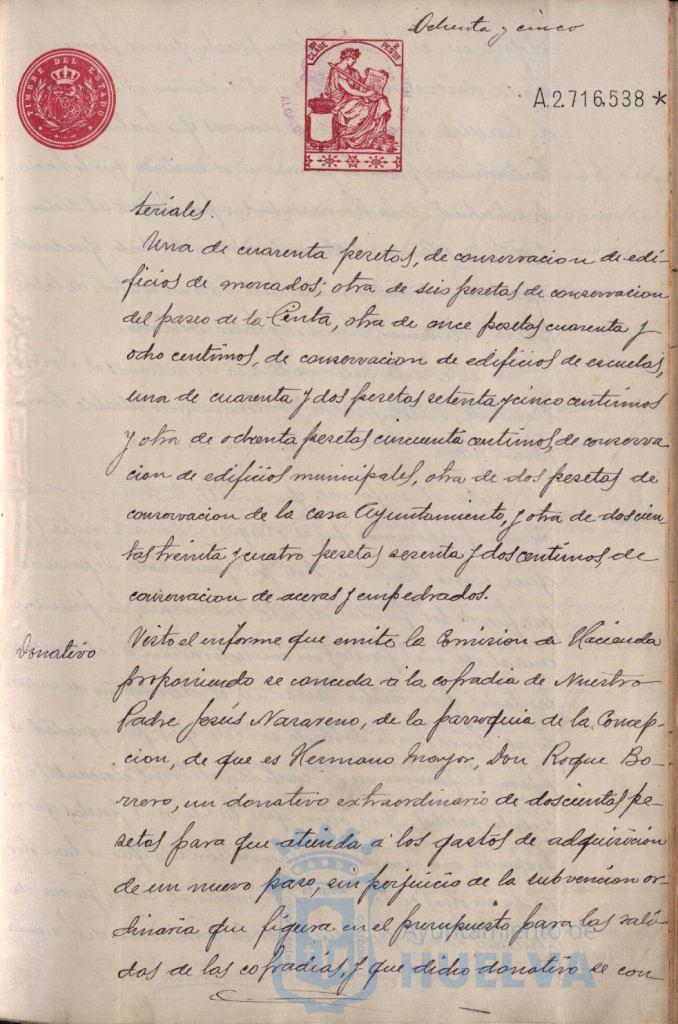 Ochenta y cinco
TIMBRE DEL ESTADO
10ª CLASE 2 PESTAS
A.2.716,538 *
teriales.
Una de cuarenta pesetas, de conservacion de edi-
ficios de mercados; otra de seis pesetas de conservacion
del paseo de la Cinta, otra de once pesetas cuarenta y
ocho centimos, de conservacion de edificios de escuelas,
una de cuarenta y dos pesetas setenta y cinco centimos
y otra de ochenta pesetas cincuenta centimos, de conserva
cion de edificios municipales, otra de dos pesetas de
conservacion de la casa Ayuntamiento, y otra de doscien
tas treinta y cuatro pesetas sesenta y dos centimos de
conservacion de aceras y empedrados.
Donativo
Visto el informe que emite la Comision de Hacienda
proponiendo se conceda á la cofradia de Nuestro
Padre Jesús Nazareno, de la parroquia de la Concep-
cion, de que es Hermano Mayor, Don Roque Bo-
rrero, un donativo extraordinario de doscientas pe-
setas para que atienda á los gastos de adquisicion
de un nuevo paso, sin perjuicio de la subvencion or-
dinaria que figura en el presupuesto para las sali-
das de las cofradias, y que dicho donativo se con
Ayuntamiento de
HUELVA